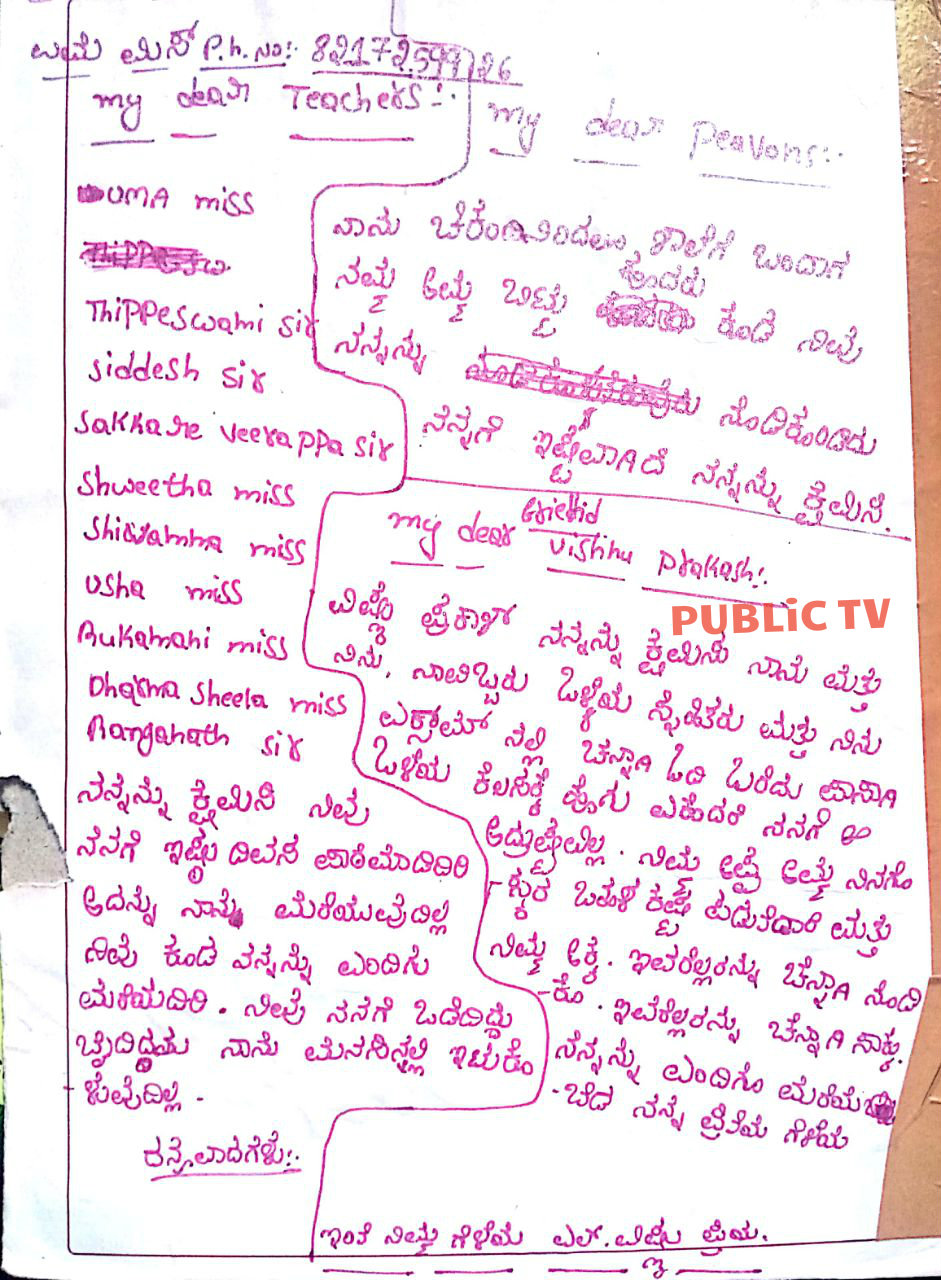 ಉಮೆ ಮಿಸ್ P.h. No:- 8217259926
my dear Teachers:-
UMA miss
Thippeswami sir
siddesh sir
Sakkare veerappa sir
Shweetha miss
Shivamma miss
Usha miss
Rukamani miss
Dharma sheela miss
Ranganath sir
ನನ್ನನ್ನು ಕ್ಷೆಮಿಸಿ ನಿವು
ನನಗೆ ಇಷ್ಟು ದಿವಸ ಪಾಠಮಾಡಿದಿರಿ
ಅದನ್ನು ನಾನು ಮರೆಯುವುದಿಲ್ಲ
ನಿವು ಕೂಡ ನನ್ನನ್ನು ಎಂದಿಗು
ಮರೆಯದಿರಿ . ನೀವು ನನಗೆ ಒಡೆದಿದ್ದು
ಬೈದಿದ್ದು ನಾನು ಮನಸಿನಲ್ಲಿ ಇಟುಕೊ
ಳುವುದಿಲ್ಲ .
ದನ್ಯವಾದಗಳು:-
my dear Peavons:-
ನಾನು ಶಾಲೆಗೆ ಬಂದಾಗ
ನಮ್ಮ ಅಮ್ಮ ಬಿಟ್ಟು ಬಂದರು ಕೂಡ ನಿವು
ನನ್ನನ್ನು ನೊಡಿಕೊಂಡಿದು
ನನ್ನಗೆ ಇಷ್ಟವಾಗಿದೆ ನನ್ನನ್ನು ಕ್ಷೆಮಿಸಿ.
my dear Griend Vishnu Prakash:-
ವಿಷ್ಣು ಪ್ರಕಾಶ್ ನನ್ನನ್ನು ಕ್ಷೆಮಿಸು ನಾನು ಮತ್ತು
ನಿನು, ನಾವಿಬ್ಬರು ಒಳ್ಳೆಯ ಸ್ನೆಹಿತರು ಮತ್ತು ನಿನು
ಎಕ್ಸಾಮ್ ನಲ್ಲಿ ಚನ್ನಾಗಿ ಓದಿ ಬರೆದು ಪಾಸಾಗಿ
ಒಳೆಯ ಕೆಲಸಕ್ಕೆ ಹೋಗು ಎಕೆದರೆ ನನಗೆ ಆ
ಅದ್ರುಷ್ಟವಿಲ್ಲ . ನಿಮ್ಮ ಅಪ್ಪ ಅಮ್ಮ ನಿನಗೊ
-ಸ್ಕರ ಬಹಳ ಕಷ್ಟ ಪಡುತಿದಾರೆ ಮತ್ತು
ನಿಮ್ಮ ಅಕ್ಕ . ಇವರೆಲ್ಲರನ್ನು ಚೆನ್ನಾಗಿ ನೊಡಿ
-ಕೊ . ಇವರೆಲ್ಲರನ್ನು ಚೆನ್ನಾಗಿ ಸಾಕು.
ನನ್ನನ್ನು ಎಂದಿಗೂ ಮರೆಯ
-ಬೆಡ ನನ್ನ ಪ್ರಿತಿಯ ಗೆಳೆಯ
ಇಂತಿ ನಿಮ್ಮ ಗೆಳೆಯ ಎಲ್. ವಿಷ್ಣು ಪ್ರಿಯ.
PUBLiC TV